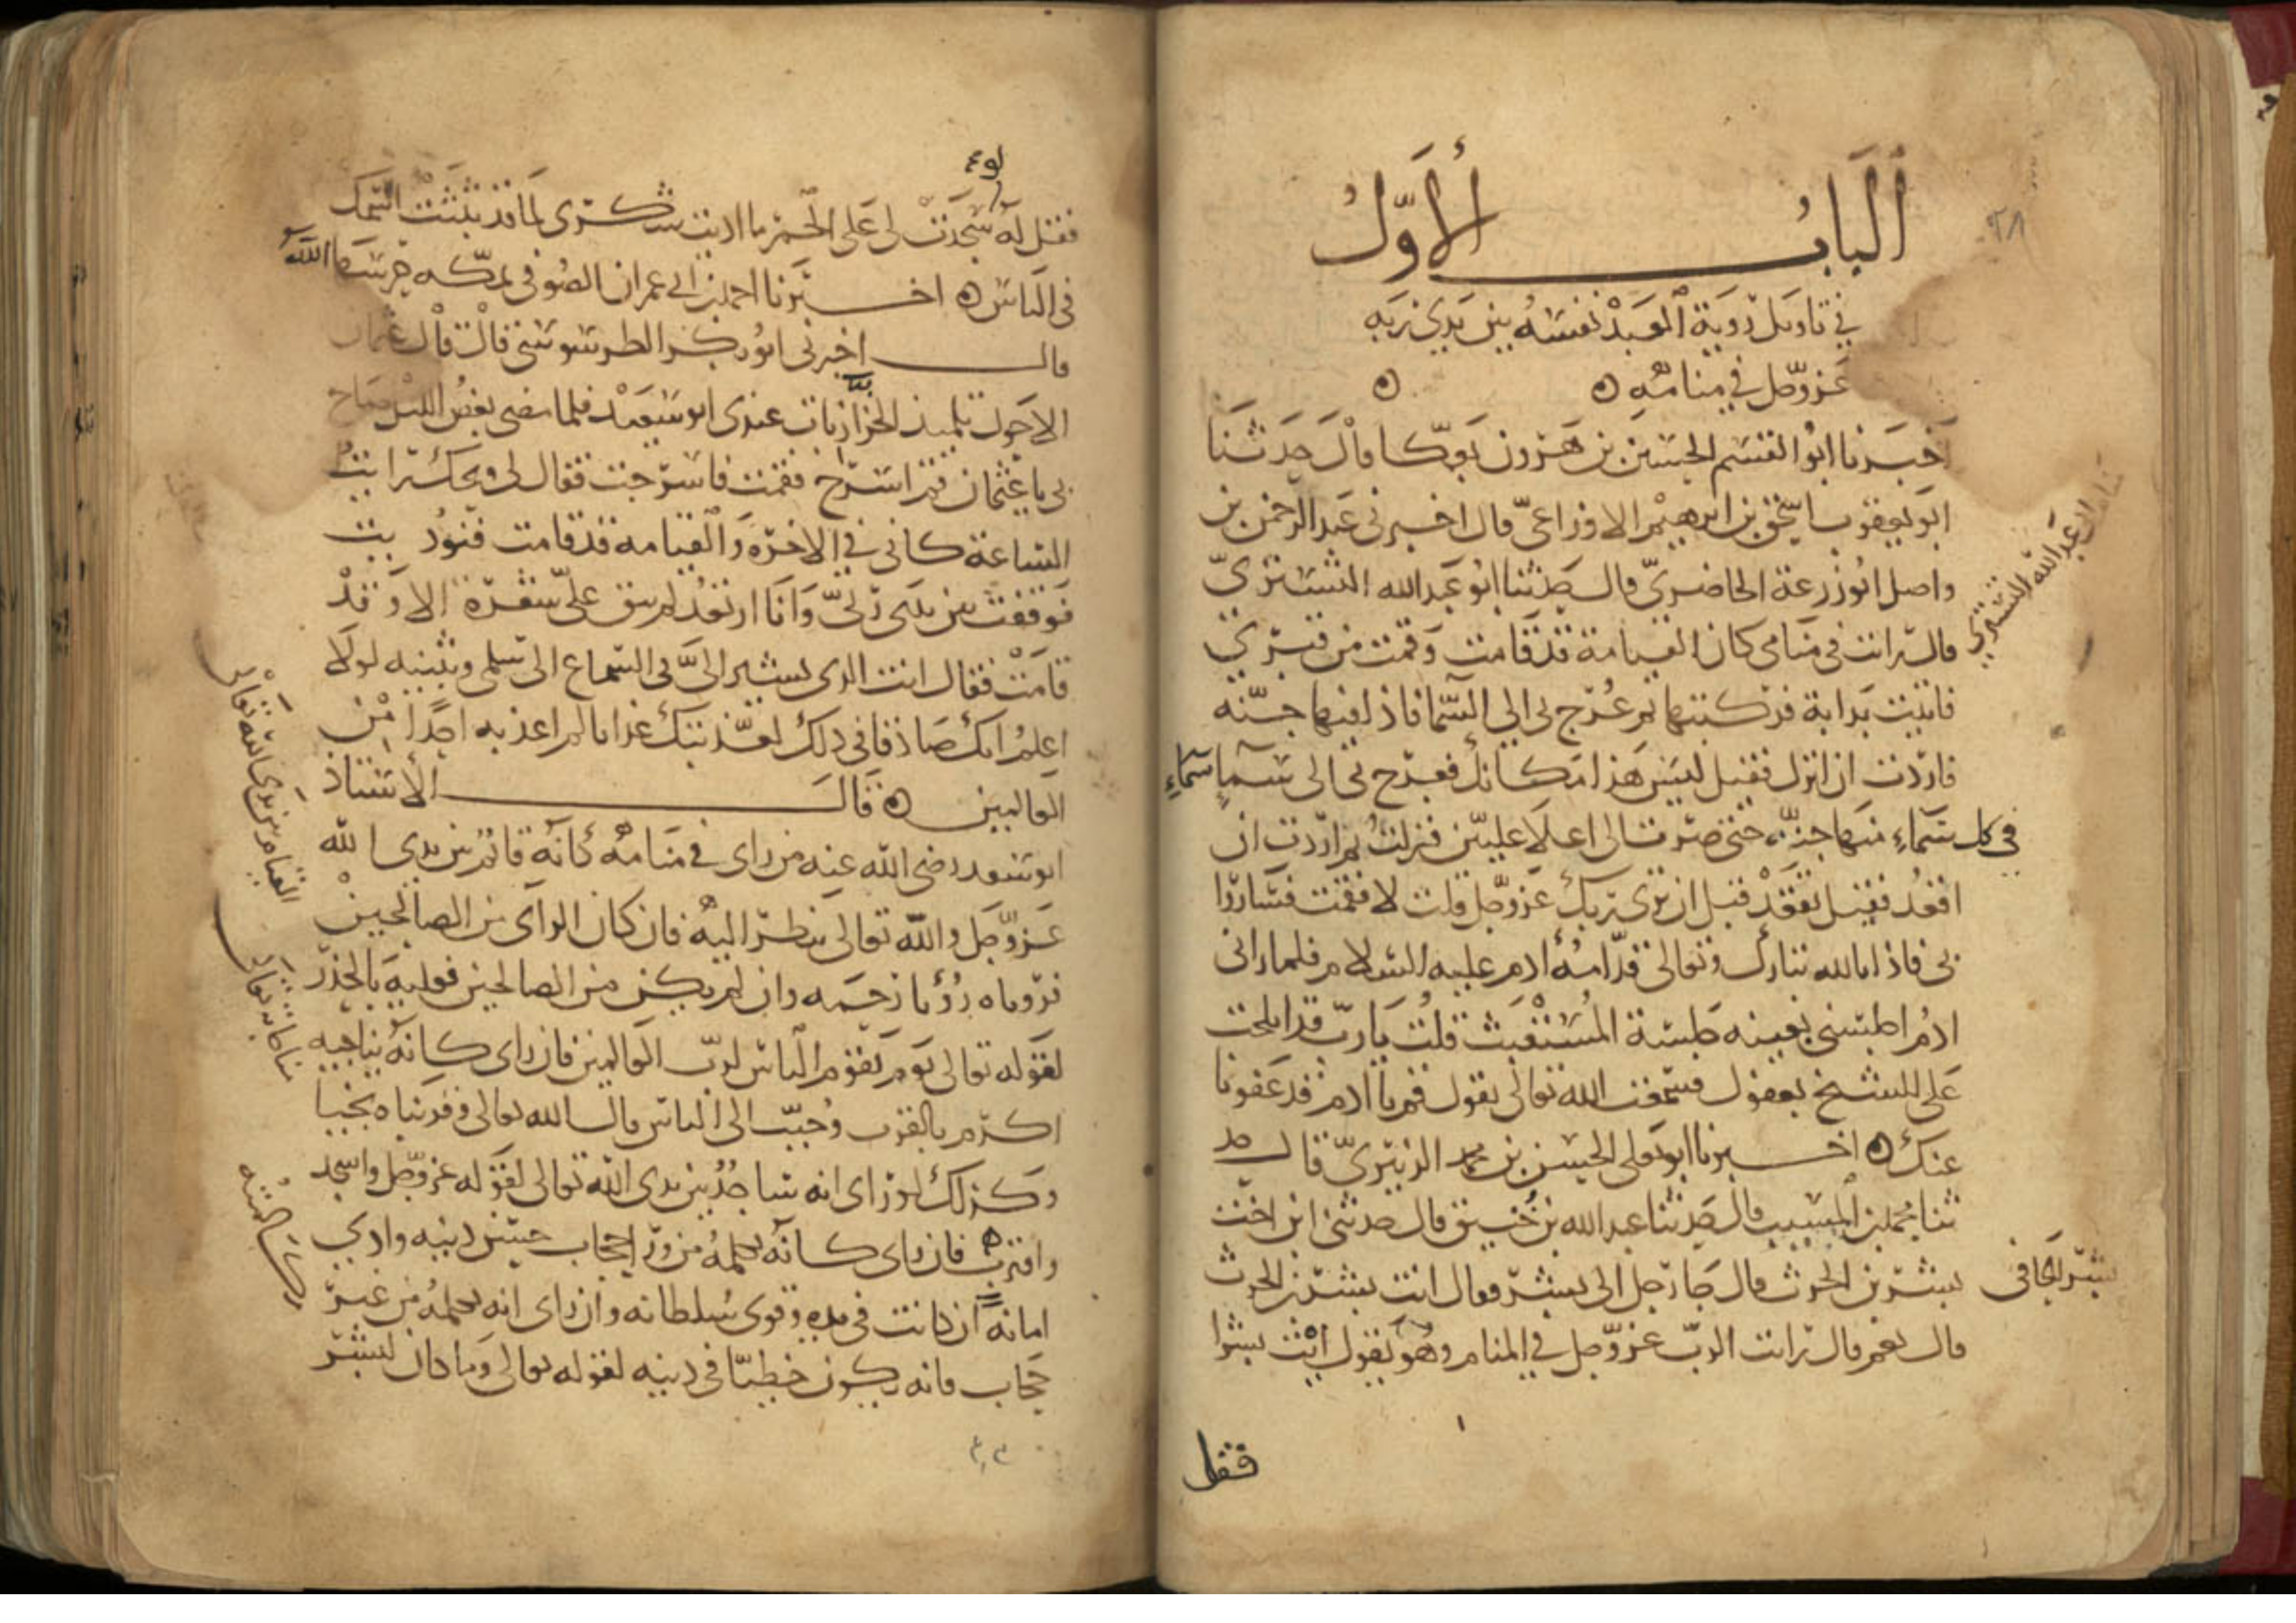 ٱلبابُ الأوّلُ
٢٨
في تاويل رؤية العبد نفسه بين يدي ربه
عز وجل في منامه ه ه
اخبرنا ابو القسم الحسين بن هرون بعكا قال حدثنا
ابو يعقوب اسحق بن ابرهيم الاوزاعي قال اخبرني عبد الرحمن بن
واصل ابو زرعة الحاضري قال حدثنا ابو عبد الله التستري
عبد الله التستري
قال رايت في منامي كان القيامة قد قامت وقمت من قبري
فاتيت بدابة فركبتها ثم عرج بي الى السما فاذا فيها جنه
فاردت ان انزل فقيل ليس هذا مكانك فعرج بي الى سما سماء
في كل سماء منها جنه حتى صرت الى اعلا عليين فنزلت ثم اردت ان
اقعد فقيل تقعد قبل ان ترى ربك عز وجل قلت لا فقمت فساروا
بي فاذا بالله تبارك وتعالى قدامه ادم عليه السلام فلما راني
ادم اجلسني بيمينه جلسة المستغيث قلت يا رب قد افلجت
على الشيخ بعفوك فسمعت الله تعالى يقول قم يا ادم قد عفونا
عنك ه اخبرنا ابو علي الحسن بن محمد الزبيري قال حد
ثنا محمد بن المسيب قال حدثنا عبد الله بن خبيق قال حدثني ابن اخت
بشر الحافي
بشر بن الحرث قال جا رجل الى بشر فقال انت بشر بن الحرث
قال نعم قال رايت الرب عز وجل في المنام وهو يقول ائت بشرا
فقل
فقل له لو سجدت لي على الجمر ما اديت شكري لما قد بثثت اسمك
في الناس ه اخبرنا احمد بن ابي عمران الصوفي بمكه حرسها الله
قال اخبرني ابو بكر الطرسوسي قال قال عثمان
الاحول تلميذ الخراز بات عندي ابو سعيد فلما مضى بعض الليل صاح
بي يا عثمان قم اسرج فقمت فاسرجت فقال لي ويحك رايت
الساعة كاني في الاخرة والقيامه قد قامت فنوديت
فوقفت بين يدي ربي وانا ارتعد لم يبق علي شعرة الا وقد
قامت فقال انت الذي تشير الي في السماع الى سلمى وبثينه لولا
اعلم انك صادقا في ذلك لعذبتك عذابا لم اعذبه احدا من
العالمين ه قال الاستاذ
ابو سعد رضي الله عنه من راى في منامه كانه قائم بين يدي الله
القيام بين يدي الله تعالى
عز وجل والله تعالى ينظر اليه فان كان الراي من الصالحين
فروياه رؤيا رحمه وان لم يكن من الصالحين فعليه بالحذر
لقوله تعالى يوم يقوم الناس لرب العالمين فان راى كانه يناجيه
مناجاته تعالى
اكرم بالقرب وحبب الى الناس قال الله تعالى وقربناه نجيا
وكذلك لو راى انه ساجد بين يدي الله تعالى لقوله عز وجل واسجد
واقترب فان راى كانه يكلمه من ورا حجاب حسن دينه وادى
امانة ان كانت في يده وقوي سلطانه وان راى انه يكلمه من غير
حجاب فانه يكون خطيا في دينه لقوله تعالى وما كان لبشر